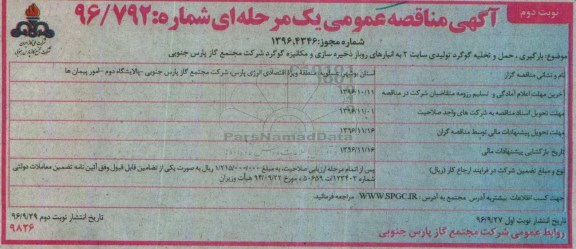 نوبت دوم
آگهی مناقصه عمومی یک مرحله ای شماره: ۹۶/۷۹۲
شماره مجوز: ۱۳۹۶.۴۳۴۶
موضوع: بارگیری، حمل و تخلیه گوگرد تولیدی سایت ۲ به انبارهای روباز ذخیره سازی و مکانیزه گوگرد شرکت مجتمع گاز پارس جنوبی
نام و نشانی مناقصه گزار
استان بوشهر، عسلویه، منطقه ویژه اقتصادی انرژی پارس، شرکت مجتمع گاز پارس جنوبی - پالایشگاه دوم - امور پیمان ها
آخرین مهلت اعلام آمادگی و تسلیم رزومه متقاضیان شرکت در مناقصه
۱۳۹۶/۱۰/۱۱
مهلت تحویل اسناد مناقصه به شرکت های واجد صلاحیت
۱۳۹۶/۱۱/۰۱
مهلت تحویل پیشنهادات مالی توسط مناقصه گران
۱۳۹۶/۱۱/۱۶
تاریخ بازگشایی پیشنهادات مالی
۱۳۹۶/۱۱/۱۶
نوع و مبلغ تضمین شرکت در فرایند ارجاع کار (ریال)
پس از اتمام مرحله ارزیابی صلاحیت، به مبلغ ۱/۲۱۵/۰۰۰/۰۰۰ ریال به صورت یکی از تضامین قابل قبول وفق آئین نامه تضمین معاملات دولتی
شماره ۱۲۳۴۰۲/ت۵۰۶۵۹ه مورخ ۹۴/۰۹/۲۲ هیأت وزیران
جهت کسب اطلاعات بیشتر به آدرس مجتمع به آدرس: WWW.SPGC.IR مراجعه فرمائید.
تاریخ انتشار نوبت اول ۹۶/۹/۲۷
تاریخ انتشار نوبت دوم ۹۶/۹/۲۹
روابط عمومی شرکت مجتمع گاز پارس جنوبی
۹۸۲۶
ParsNamadData